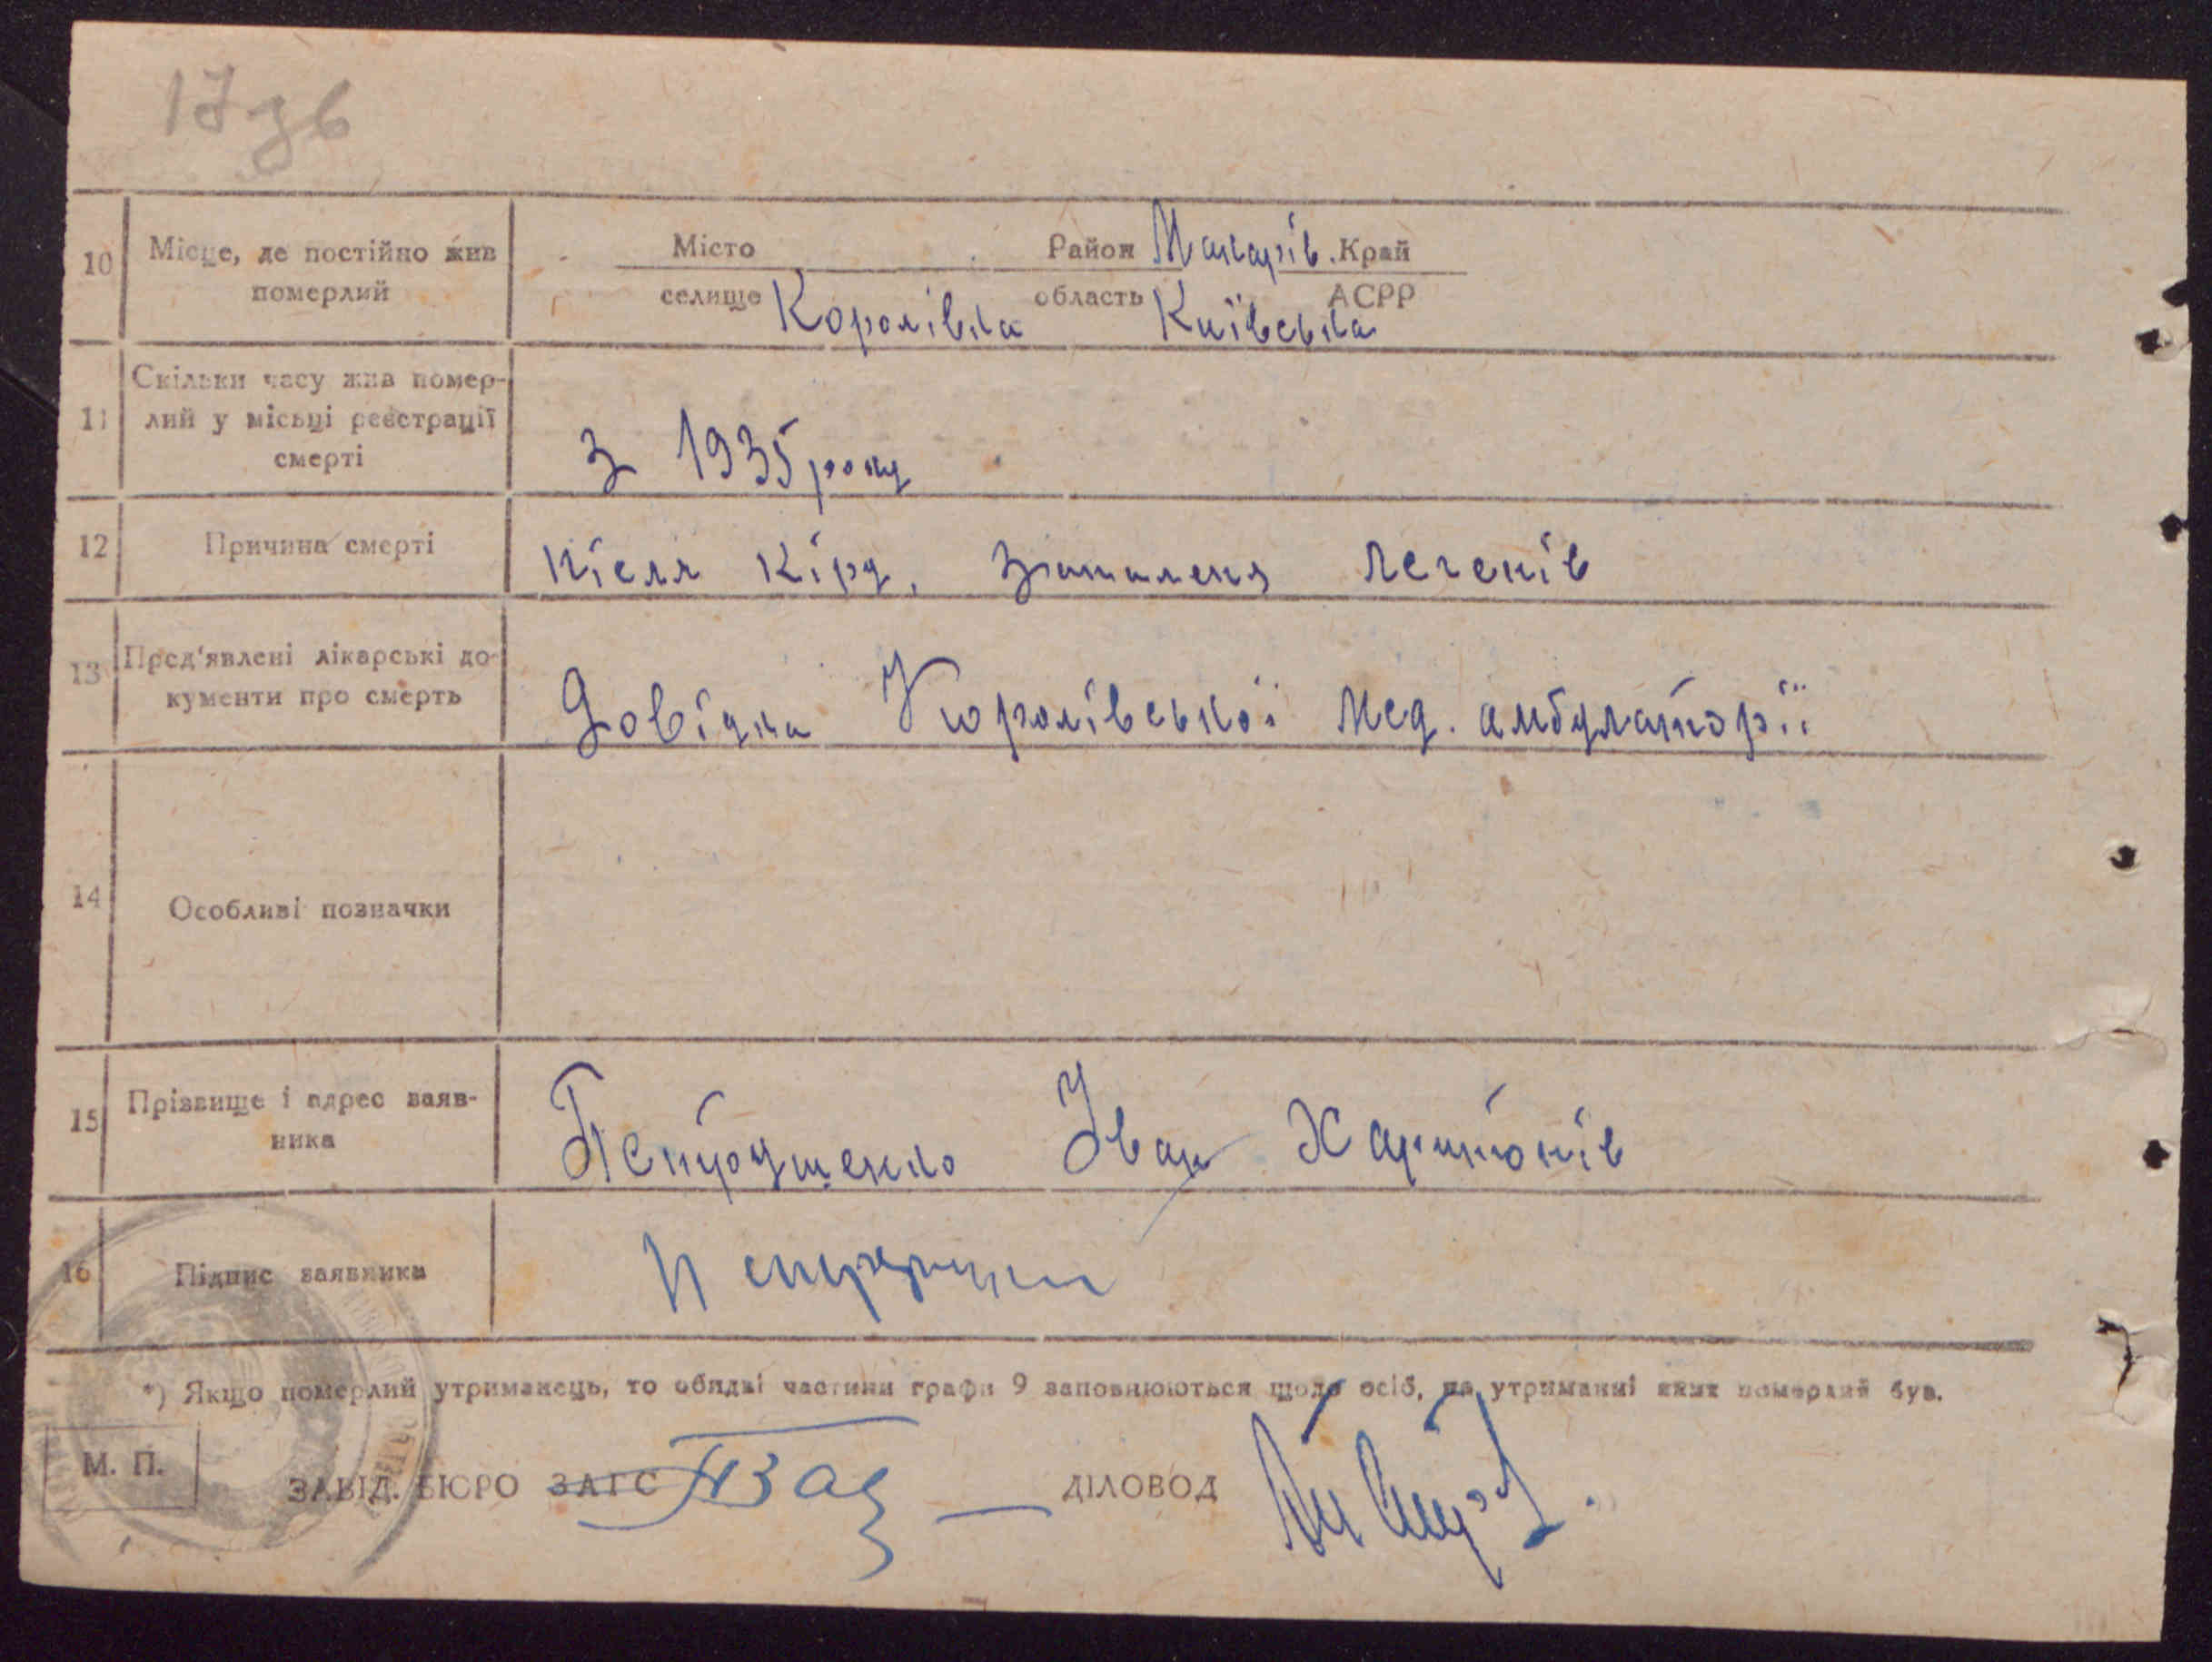 17 зв
10 Місце, де постійно жив померлий
Місто Район Макарів. Край
селище Королівка область Київська АСРР
11 Скільки часу жив помер-
лий у місьці реєстрації
смерті
З 1935 року
12 Причина смерті
після кіру, запаленя легенів
13 Пред'явлені лікарські до-
кументи про смерть
Довідка Королівської мед. амбулаторії
14 Особливі позначки
15 Прізвище і адрес заяв-
ника
Петрущенко Іван Харитонів
16 Підпис заявника
*) Якщо померлий утриманець, то обидві частини графи 9 заповнюються щодо осіб, на утриманні яких померлий був.
М. П.
ЗАВІД. БЮРО ЗАГС ДІЛОВОД